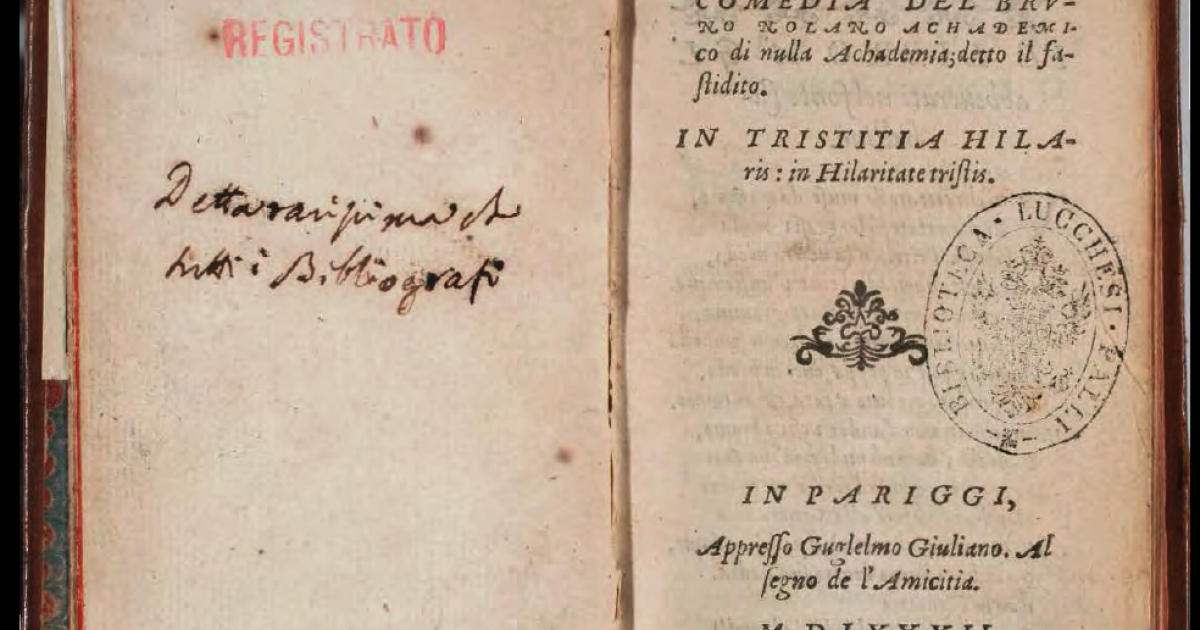 REGISTRATO
Detta rarissima da
tutti i Bibliografi
COMEDIA DEL BRV-
NO NOLANO ACHADEMI-
co di nulla Achademia; detto il fa-
stidito.
IN TRISTITIA HILA-
ris: in Hilaritate tristis.
BIBLIOTECA · LUCCHESI · PALLI
IN PARIGGI,
Appresso Guglelmo Giuliano. Al
segno de l'Amicitia.
M D LXXXII